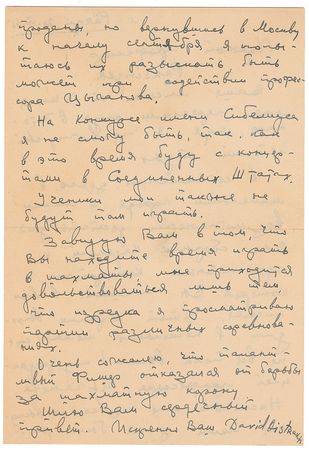 проданы, но вернувшись в Москву
к началу сентября я попы-
таюсь их разыскать быть
может при содействии профес-
сора Цыганова.
На Конкурсе имени Сибелиуса
я не смогу быть, так как
в это время буду с концер-
тами в Соединенных Штатах.
Ученики мои также не
будут там играть.
Завидую Вам в том, что
Вы находите время играть
в шахматы, мне приходится
довольствоваться лишь тем,
что изредка я просматриваю
партии различных соревнова-
ниях.
Очень сожалею, что талант-
ливый Фишер отказался от борьбы
за шахматную корону
Шлю Вам сердечный
привет. Искренно Ваш David Oistrakh